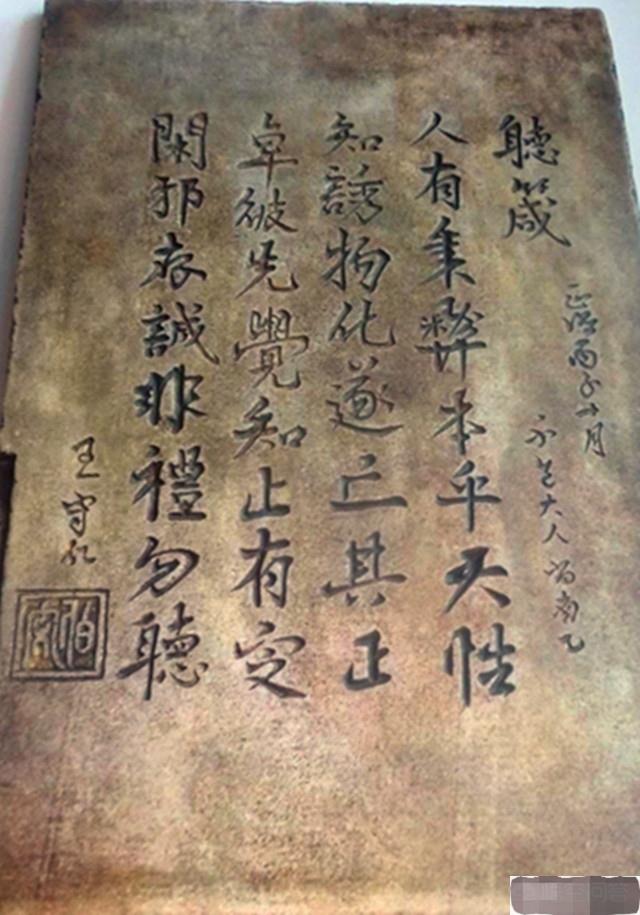 聽箴
正德丙子
月
大人
人有秉彝本乎天性
知誘物化遂亡其正
卓彼先覺知止有定
閑邪存誠非禮勿聽
王守仁
伯安